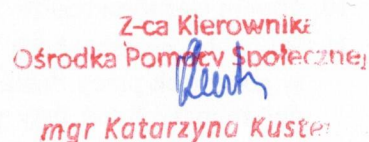 Z-ca Kierownika
Ośrodka Pomocy Społecznej
mgr Katarzyna